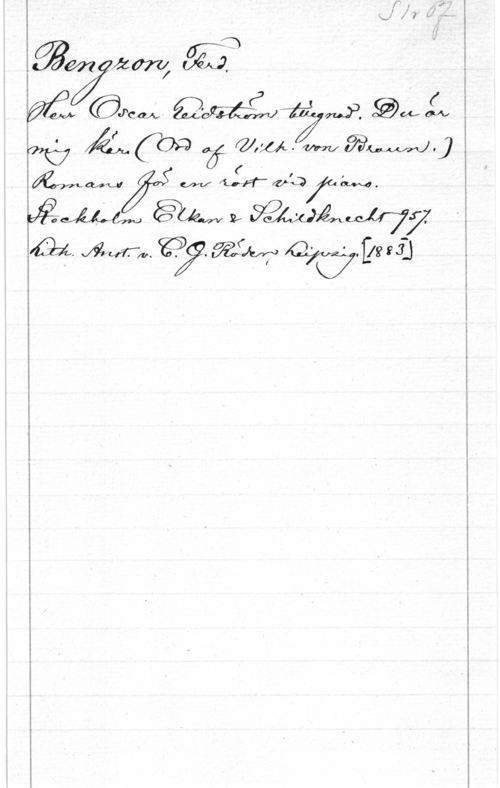 S/r 67
Bengzon, Ferd.
Herr Oscar Lidström tillegnad. Du är
mig kär. (Ord af Vilh. von Braun.)
Romans för en röst vid piano.
Stockholm Elkan & Schildknecht 957.
Lith. Anst. v. C. G. Röder, Leipzig. [1883]